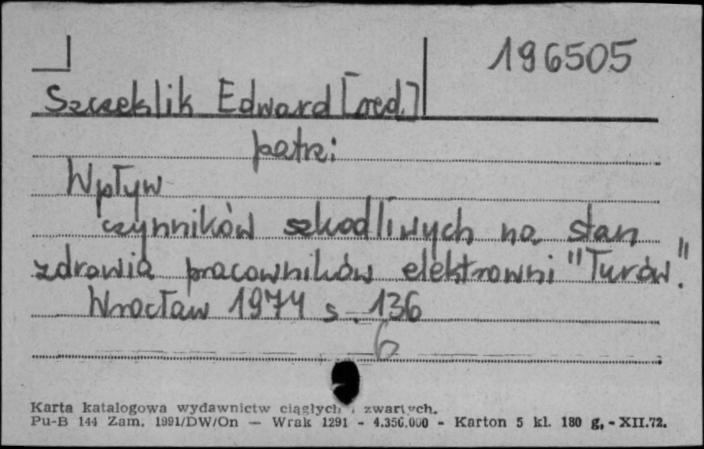 196505
Szczeklik Edward [red.]
patrz:
Wpływ
czynników szkodliwych na stan
zdrowia pracowników elektrowni "Turów".
Wrocław 1974 s. 136
6
Karta katalogowa wydawnictw ciągłych i zwartych.
Pu-B 144 Zam. 1991/DW/On — Wrak 1291 - 4.350.000 - Karton 5 kl. 180 g, - XII.72.